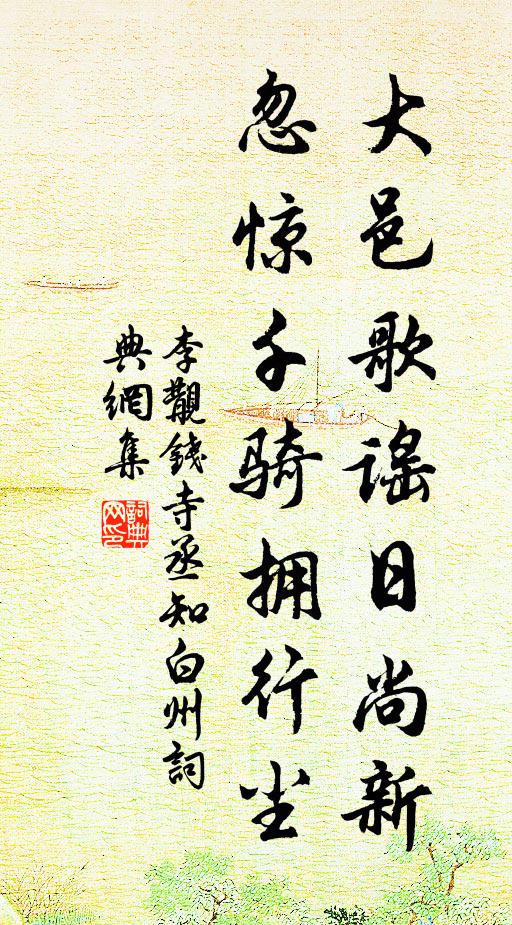 大邑歌谣日尚新
忽惊千骑拥行尘
李覯錢寺丞知白州詞
典網集
詞典
网印